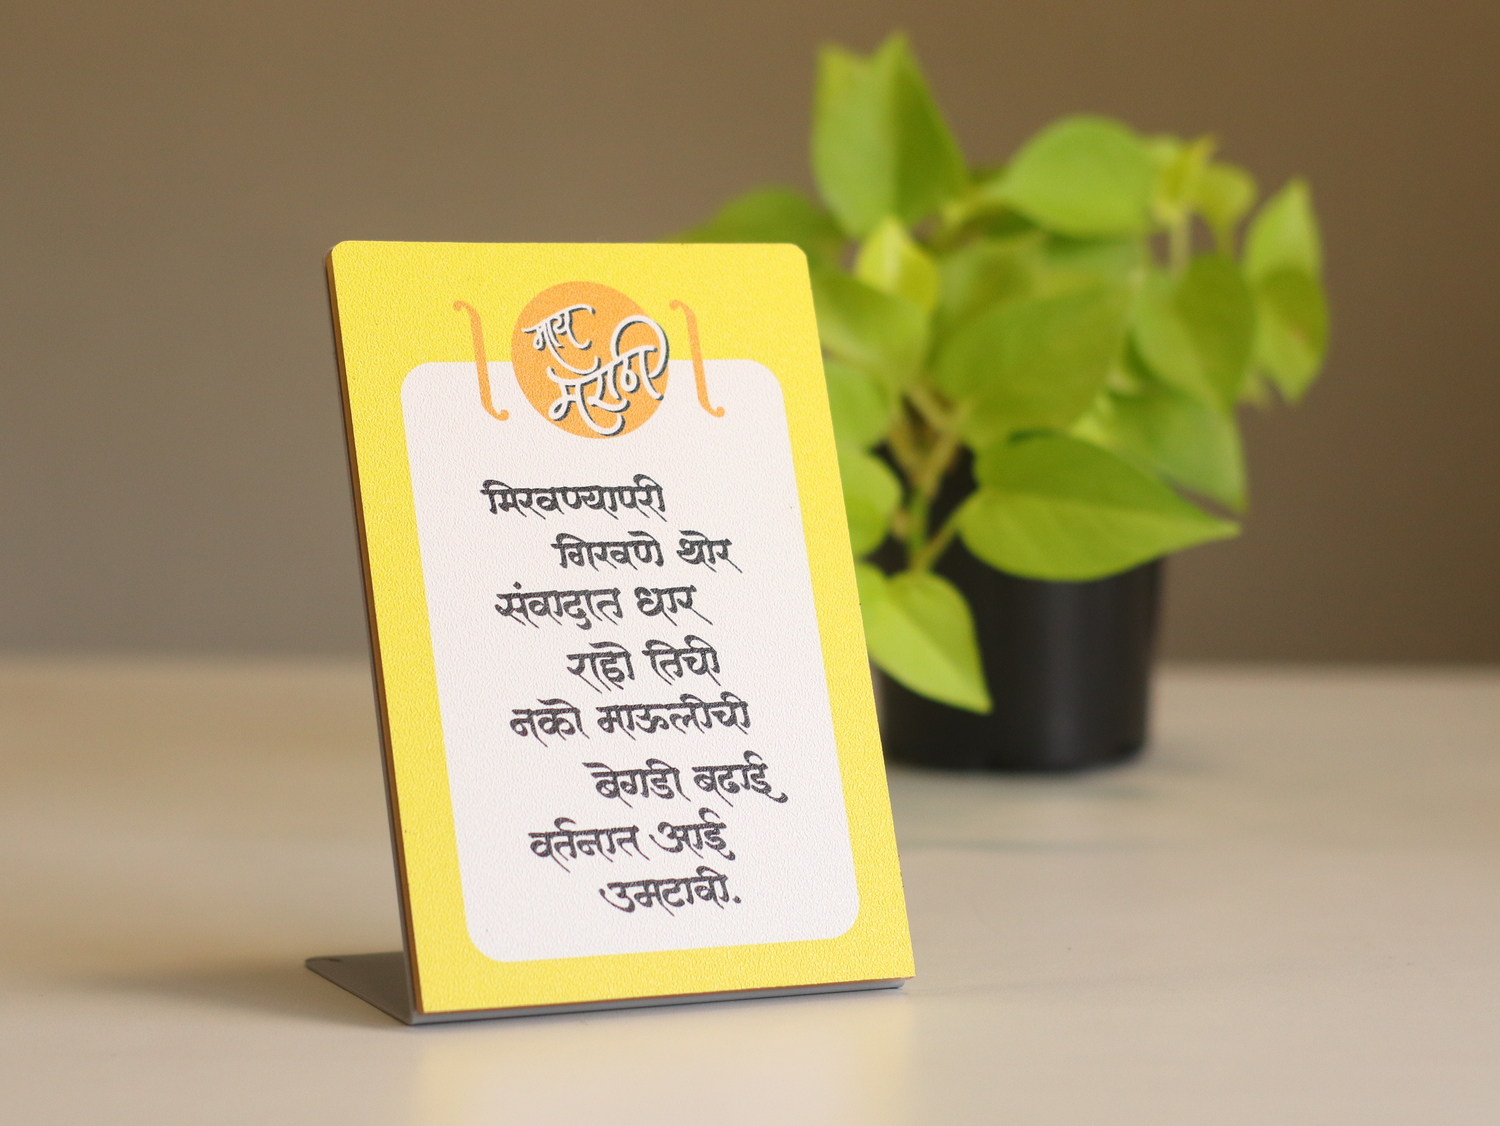 माय
मराठी
मिरवण्यापरी
गिरवणे थोर
संवादात धार
राहो तिची
नको माऊलीची
बेगडी बढाई
वर्तनात आई
उमटावी.